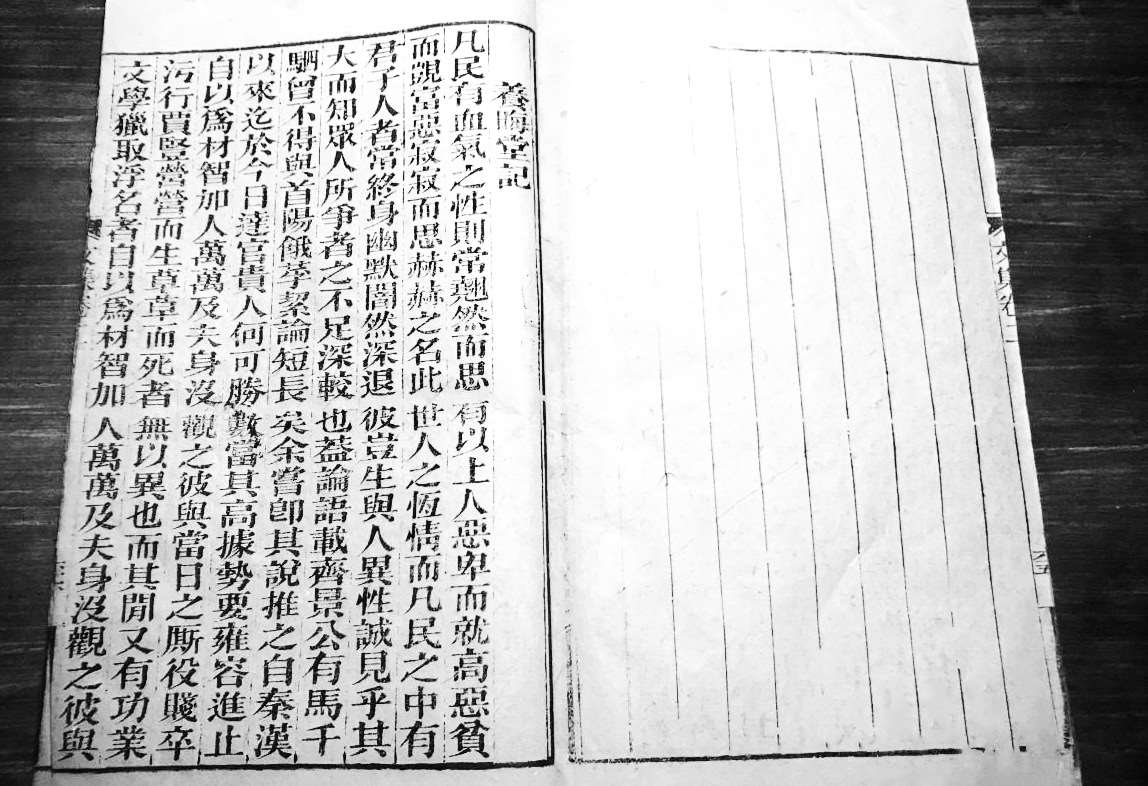 文集卷二
六五
養晦堂記
凡民有血氣之性則常翹然而思有以上人惡卑而就高惡貧
而覬富惡寂寂而思赫赫之名此世人之恆情而凡民之中有
君子人者常終身幽默闇然深退彼豈生與人異性誠見乎其
大而知眾人所爭者之不足深較也蓋論語載齊景公有馬千
駟曾不得與首陽餓莩絜論短長矣余嘗卽其說推之自秦漢
以來迄於今日達官貴人何可勝數當其高據勢要雍容進止
自以爲材智加人萬萬及夫身沒觀之彼與當日之厮役賤卒
污行賈豎營營而生草草而死者無以異也而其閒又有功業
文學獵取浮名者自以爲材智加人萬萬及夫身沒觀之彼與